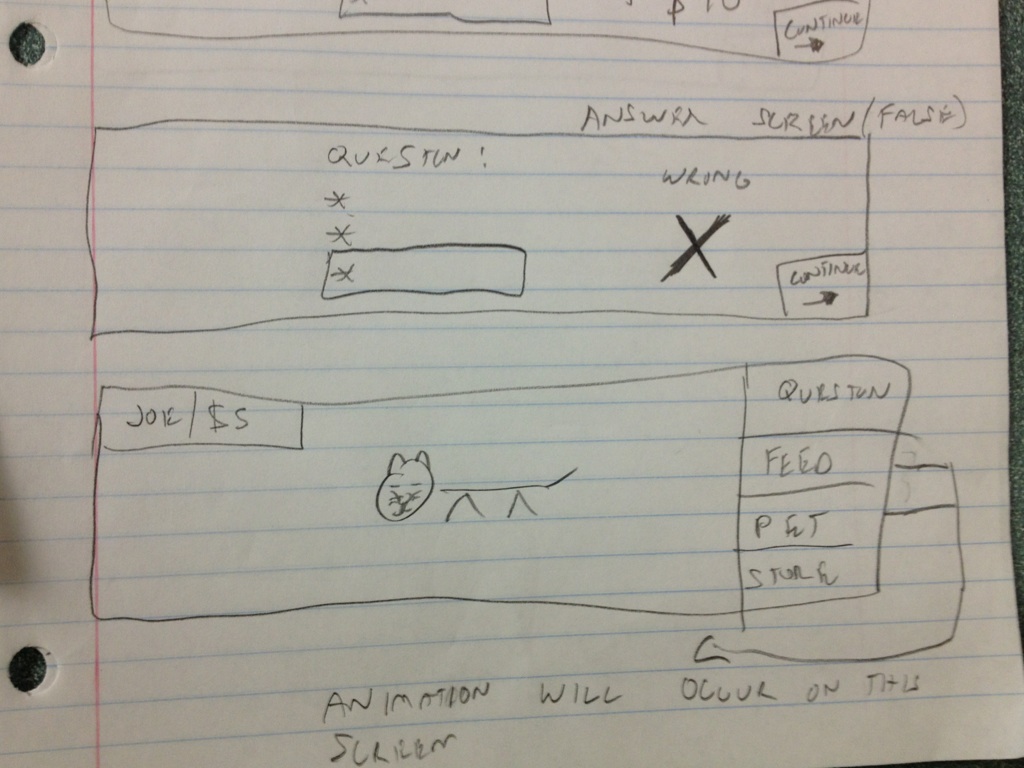 $10
CONTINUE
ANSWER SCREEN (FALSE)
QUESTUN!
*
*
*
WRONG
X
CONTINUE
JOE/$5
QUESTUN
FEED
PET
STORE
ANIMATION WILL OCCUR ON THIS
SCREEN